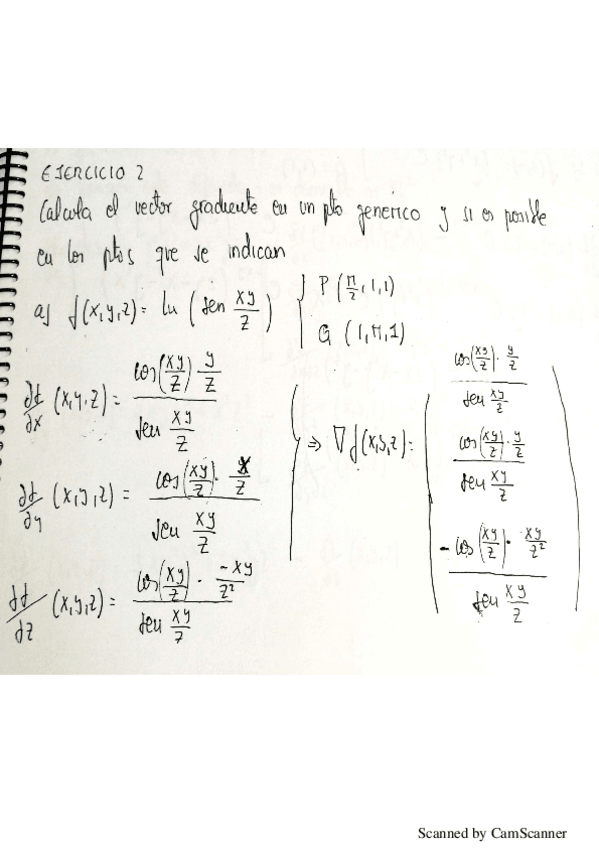 EJERCICIO 2
Calcula el vector gradiente en un pto generico y si es posible
en los ptos que se indican
a) f(x,y,z) = ln ( sen xy/z ) { P (π/2, 1, 1)
Q (1, π, 1)
∂f/∂x (x,y,z) = cos(xy/z) · y/z / sen xy/z
∂f/∂y (x,y,z) = cos(xy/z) · x/z / sen xy/z
∂f/∂z (x,y,z) = cos(xy/z) · -xy/z² / sen xy/z
⇒ ∇f(x,y,z) =
cos(xy/z) · y/z / sen xy/z
cos(xy/z) · y/z / sen xy/z
- cos(xy/z) · xy/z² / sen xy/z
Scanned by CamScanner